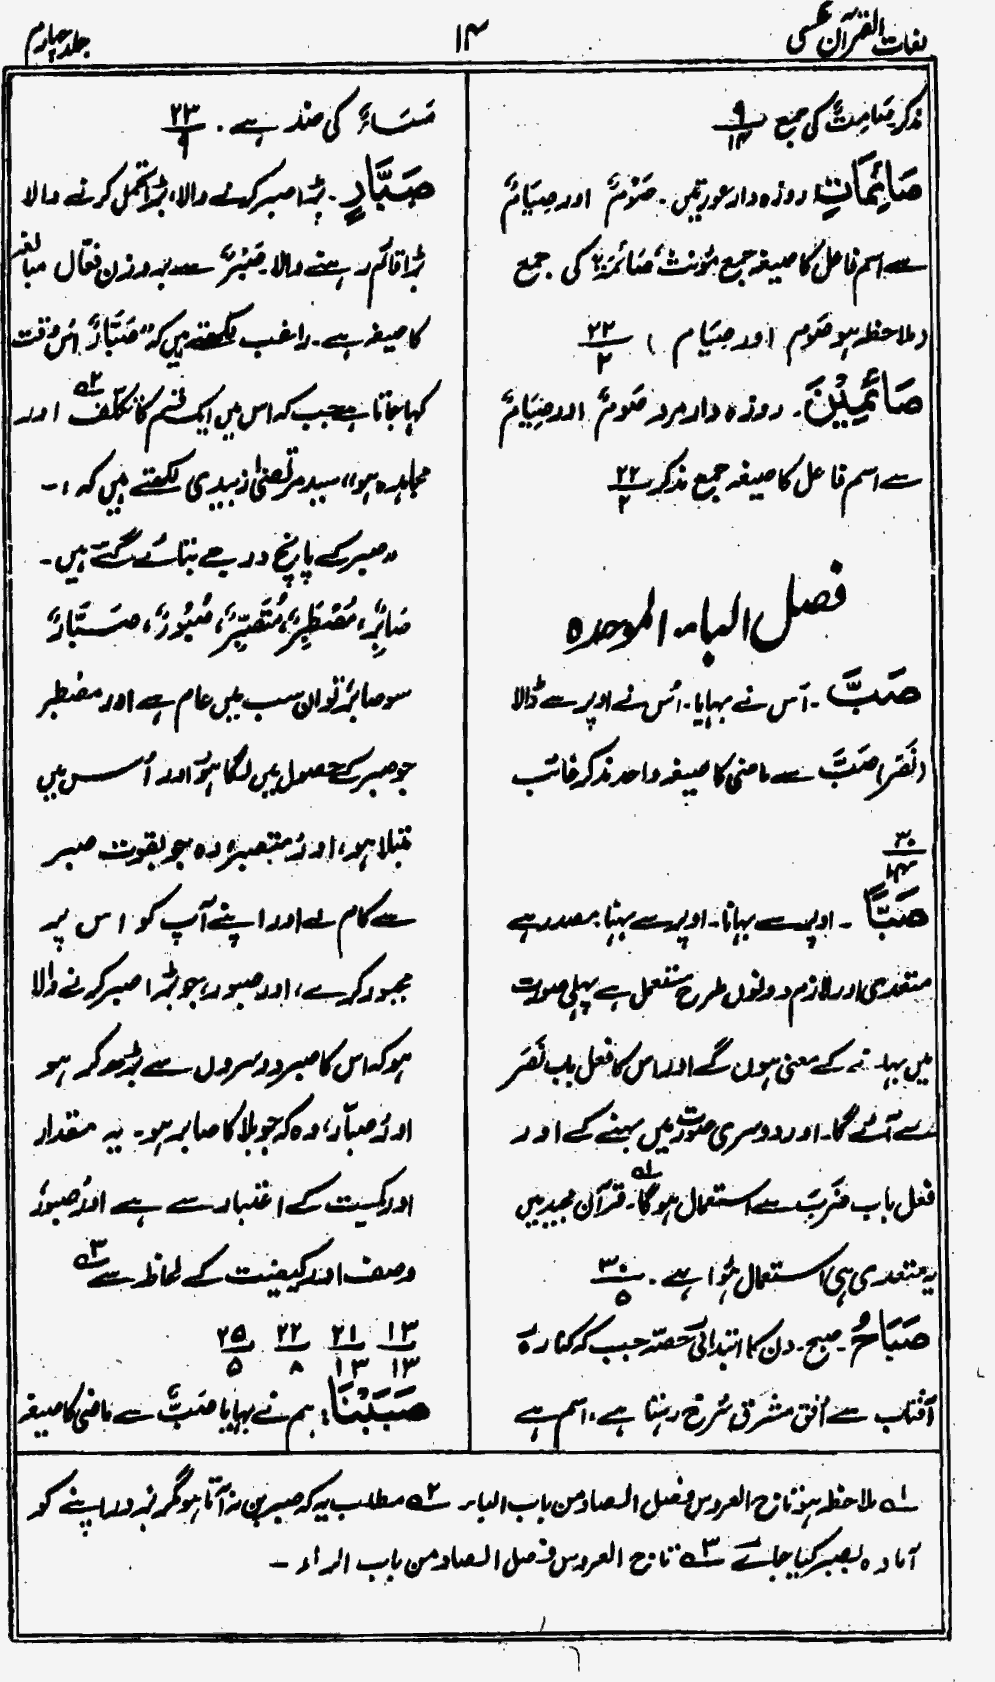 لغات القرآن عکسی
۱۴
جلد چہارم
مذکر صَامِتٌ کی جمع ۹/۱۴
صَائِمَاتٍ روزہ دار عورتیں۔ صَوْمٌ اور صِیَامٌ
سے اسم فاعل کا صیغہ جمع مؤنث، صَائِمَۃٌ کی جمع
(ملاحظہ ہو صَوم اور صِیَام) ۲۲/۲
صَائِمِیْنَ۔ روزہ دار مرد صَومٌ اور صِیَامٌ
سے اسم فاعل کا صیغہ جمع مذکر ۲۲/۲
فصل الباء الموحدہ
صَبَّ۔ اُس نے بہایا۔ اُس نے اوپر سے ڈالا
(نَصَرَ) صَبٌّ سے ماضی کا صیغہ واحد مذکر غائب
۳۰/۱۴
صَبًّا۔ اوپر سے بہانا۔ اوپر سے بہنا۔ مصدر ہے
متعدی اور لازم دونوں طرح مستعمل ہے پہلی صورت
میں بہانے کے معنی ہوں گے اور اس کا فعل باب نَصَرَ
سے آئے گا۔ اور دوسری صورت میں بہنے کے اور
فعل باب ضَرَبَ سے استعمال ہوگا۔ ۱؎ قرآن مجید میں
یہ متعدی ہی استعمال ہُوا ہے۔ ۳۰/۵
صَبَاحُ۔ صبح۔ دن کا ابتدائی حصّہ جب کہ کنارۂ
آفتاب سے اُفق مشرق سُرخ رہتا ہے، اسم ہے
مَسَاءٌ کی ضد ہے۔ ۲۳/۹
صَبَّارٍ۔ بڑا صبر کرنے والا، بڑا تحمل کرنے والا
بڑا قائم رہنے والا۔ صَبْرٌ سے بروزن فَعّال مبالغہ
کا صیغہ ہے۔ راغب لکھتے ہیں کہ "صَبَّارٌ اُس وقت
کہا جاتا ہے جب کہ اس میں ایک قسم کا تکلّف ۲؎ اور
مجاہدہ ہو" سید مرتضیٰ زبیدی لکھتے ہیں کہ :-
"صبر کے پانچ درجے بتائے گئے ہیں۔
صَابِرٌ، مُصْطَبِرٌ، مُتَصَبِّرٌ، صُبُورٌ، صَبَّارٌ
سو صابرٌ تو ان سب میں عام ہے اور مصْطبر
جو صبر کے حصول میں لگا ہوا اور اُس میں
مبتلا ہو، اور متصبر وہ جو بقوت صبر
سے کام لے اور اپنے آپ کو اس پر
مجبور کرے، اور صبور، جو بڑا صبر کرنے والا
ہو کہ اس کا صبر دوسروں سے بڑھ کر ہو
اور صبّار، وہ کہ جو بلا کا صابر ہو۔ یہ مقدار
اور کمیت کے اعتبار سے ہے اور صبور
وصف اور کیفیت کے لحاظ سے ۳؎
۱۳/۱۳ ۲۱/۱۳ ۲۲/۸ ۲۵/۵
صَبَبْنَا۔ ہم نے بہایا صَبٌّ سے ماضی کا صیغہ
۱؎ ملاحظہ ہو تاج العروس فصل الصاد من باب الباء ۲؎ مطلب یہ کہ صبر بن نہ آتا ہو مگر بزور اپنے کو
آمادہ بصبر کیا جائے ۳؎ تاج العروس فصل الصاد من باب الراء۔